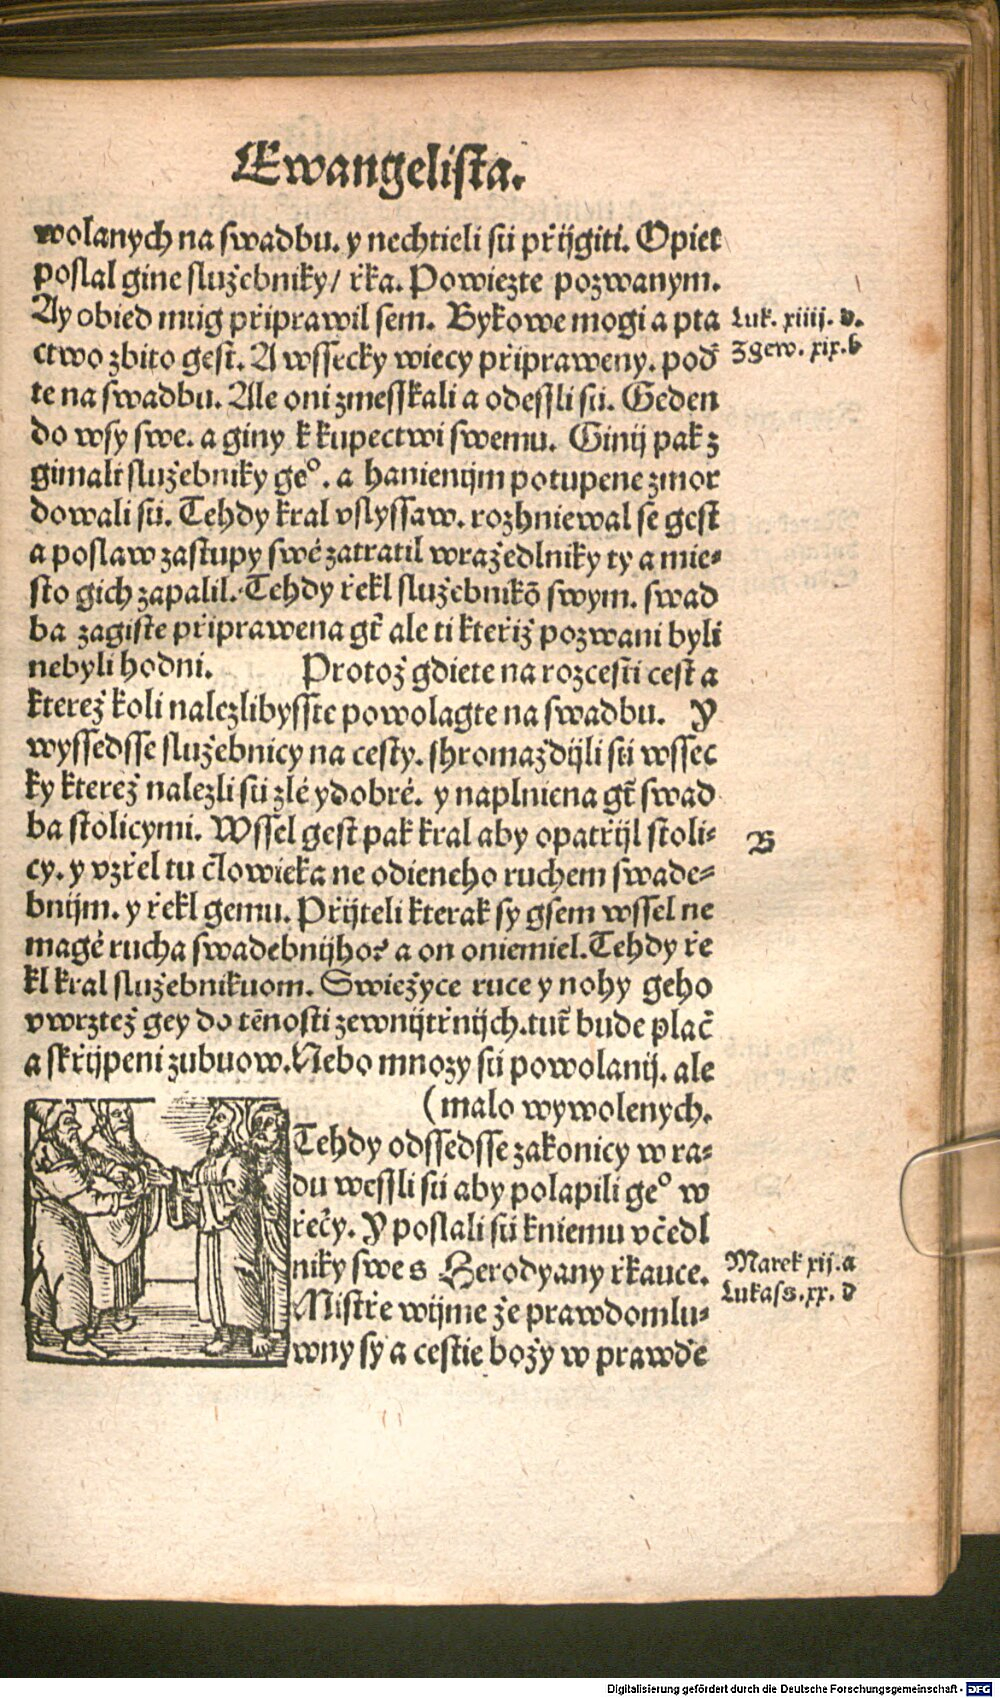 Ewangelista.
wolanych na swadbu. y nechtieli sú přijgiti. Opiet
poslal gine služebniky/ řka. Powiezte pozwanym.
Ay obied muig připrawil sem. Bykowe mogi a pta
ctwo zbito gest. A wssecky wiecy připraweny. poď
te na swadbu. Ale oni zmesskali a odessli sú. Geden
do wsy swe. a giny k kupectwi swemu. Ginij pak z
gimali služebniky geº. a hanienijm potupene zmor
dowali sú. Tehdy kral vslyssaw. rozhniewal se gest
a poslaw zastupy swé zatratil wražedlniky ty a mie-
sto gich zapalil. Tehdy řekl služebnikō swym. swad
ba zagiste připrawena gt̃ ale ti kteřiž pozwani byli
nebyli hodni. Protož gdiete na rozcesti cest a
kterež koli nalezlibysste powolagte na swadbu. Y
wyssedsse služebnicy na cesty. shromaždijli sú wssec
ky kterež nalezli sú zlé y dobré. y naplniena gt̃ swad
ba stolicymi. Wssel gest pak kral aby opatřijl stoli-
cy. y vzřel tu člowieka ne odieneho ruchem swade-
bnijm. y řekl gemu. Přijteli kterak sy gsem wssel ne
magé rucha swadebnijho? a on oniemiel. Tehdy ře
kl kral služebnikuom. Swiežyce ruce y nohy geho
vwrztež gey do tēnosti zewnijtřnijch. tut̃ bude plač
a skřijpeni zubuow. Nebo mnozy sú powolanij. ale
(malo wywolenych.
Tehdy odssedsse zakonicy w ra-
du wessli sú aby polapili geº w
řečy. Y poslali sú kniemu včedl
niky swe s Herodyany řkauce.
Mistře wijme že prawdomlu-
wny sy a cestie božy w prawďe
Luk. xiiij. d.
Zgew. xix. b
B
Marek xij. a
Lukass. xx. d
Digitalisierung gefördert durch die Deutsche Forschungsgemeinschaft - DFG